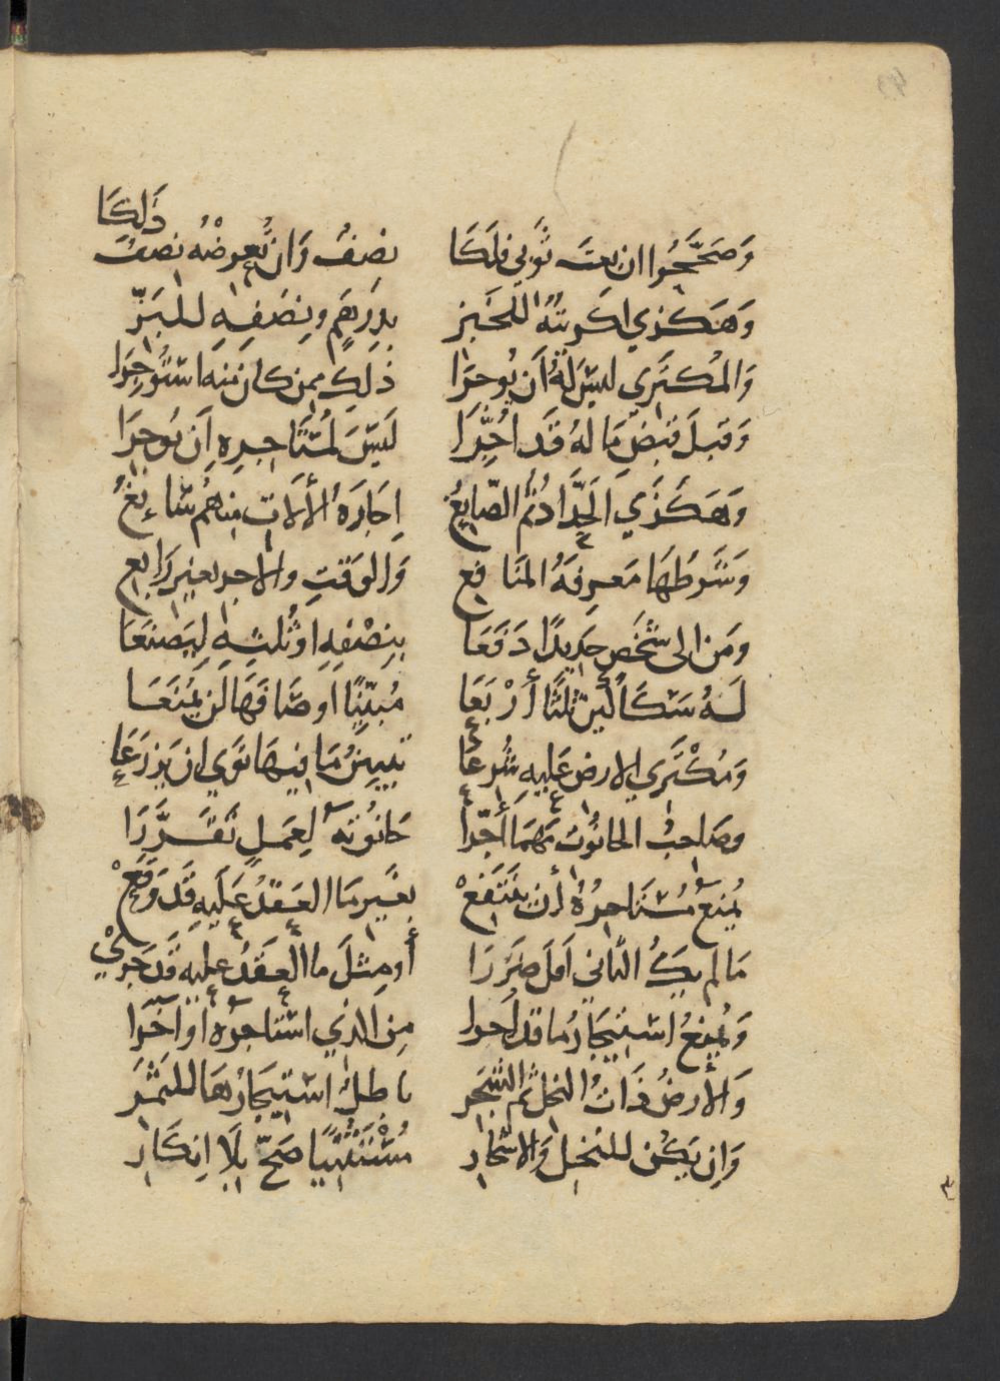 وَصَحَّحُوا ان بعتَ ثَوبي فلَكَا نصفُ وَان تُعِوِضْهُ نصفُ ذَلِكَا
وَهَكذي اكريتهُ للخَبز بدِرهَمٍ ونِصَفِهِ للبَزّ
وَالمُكتَرَى ليسَ لَهُ أَن يُوجرَا ذَلِكَ ممن كان مِنه استُوجِرَا
وَقبلَ قبضِ مَا لهُ قَد اُجِّرَا لَيسَ لمُستَاجِرِهِ أَن يُوجِرَا
وَهَكَذَي الحَدّادُ ثمُ الصّايِغُ اِجَارَةُ الألَاتِ مِنهُم سَائِغُ
وَشَرطُهَا مَعرِفةُ المنَافِع وَالوَقتِ والاجر بغيرِ رَابِع
ومَن الى شَخصٍ حَدِيدًا دَفَعَا بنِصْفِهِ اوثُلثِهِ لِيَصنَعَا
لَهُ سَكَاكينَ ثلثًا أرْبَعَا مُبَيّنًا اوصَافَهَا لَن يُمنَعَا
وَمُكْتَرِي الارض عَليهِ شُرعَا تبيينُ مَا فيهَا نَوَي ان يَزرَعَا
وصَاحبُ الحَانُوتِ مَهمَا أجّرا حَانُوتَه لِعَملٍ تَقَرَّرَا
يُمنعُ مُستَاجرُهُ أن يَنتَفعْ بغَيرِ مَا العَقدُ عَلَيهِ قَد وَقَعْ
مَا لم يَكُ الثاني اَقلَ ضَرَرَا أو مِثلَ ما العَقدُ عليهِ قَد جَرى
وَيُمنعُ استيجارُ ما قد اَجرا مِن الذي استاجرُه أو آخَرا
وَالأرضُ ذَاتُ النخل ثم الشجَر باطِلٌ استيجَارُهَا للثمَر
وَاِن يَكُن للنخلِ وَالاشجَار مُستَثنيًا صَحّ بِلَا اِنكَار